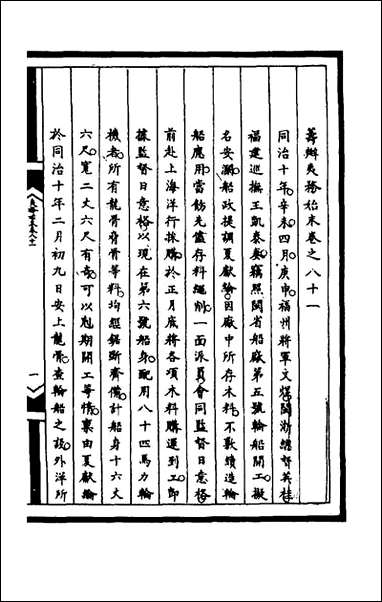 籌辦夷務始末卷之八十一
同治十年辛未四月庚申福州將軍文煜閩浙總督英桂
福建巡撫王凱泰奏竊照閩省船廠第五號輪船開工擬
名安瀾船政提調夏獻綸因廠中所存木料不敷續造輪
船應用當飭先儘存料繩削一面派員會同監督日意格
前赴上海洋行採購於正月底將各項木料購運到工卽
據監督日意格以現在第六號船身配用八十匹馬力輪
機者所有龍骨脅骨等料均經鋸斷齊備計船身十六丈
六尺寬二丈六尺有奇可以剋期開工等情稟由夏獻綸
於同治十年二月初九日安上龍骨查輪船之設外洋所
一